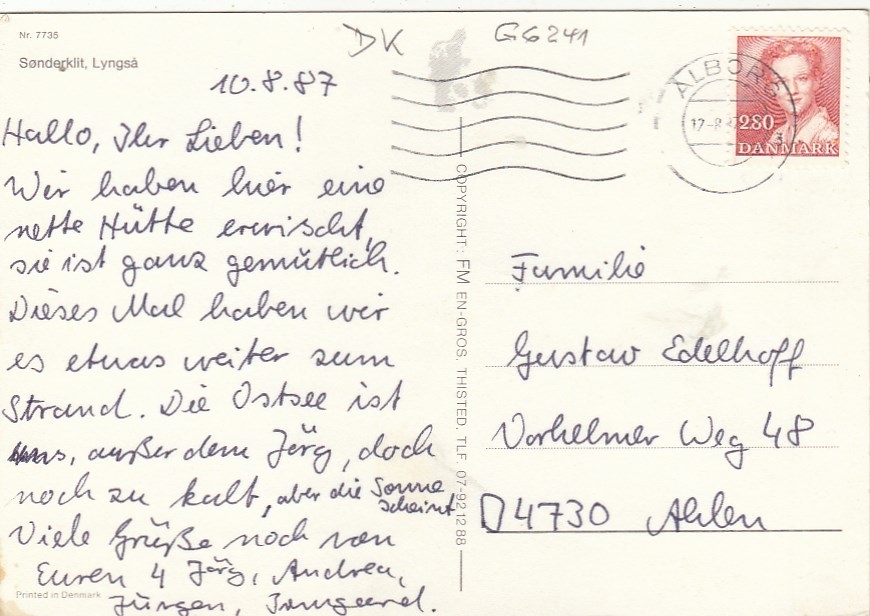 Nr. 7735
Sønderklit, Lyngså
DK
G6241
10.8.87
Hallo, Ihr Lieben!
Wir haben hier eine
nette Hütte erwischt,
sie ist ganz gemütlich.
Dieses Mal haben wir
es etwas weiter zum
Strand. Die Ostsee ist
uns, außer dem Jörg, doch
noch zu kalt, aber die Sonne
scheint
Viele Grüße noch von
Euren 4 Jörg, Andrea,
Jürgen, Irmgard.
Printed in Denmark
COPYRIGHT: FM EN-GROS. THISTED. TLF. 07-921288
ÅLBORG
12-8
280
DANMARK
Familie
Gustav Edelhoff
Vorhelmer Weg 48
D 4730 Ahlen